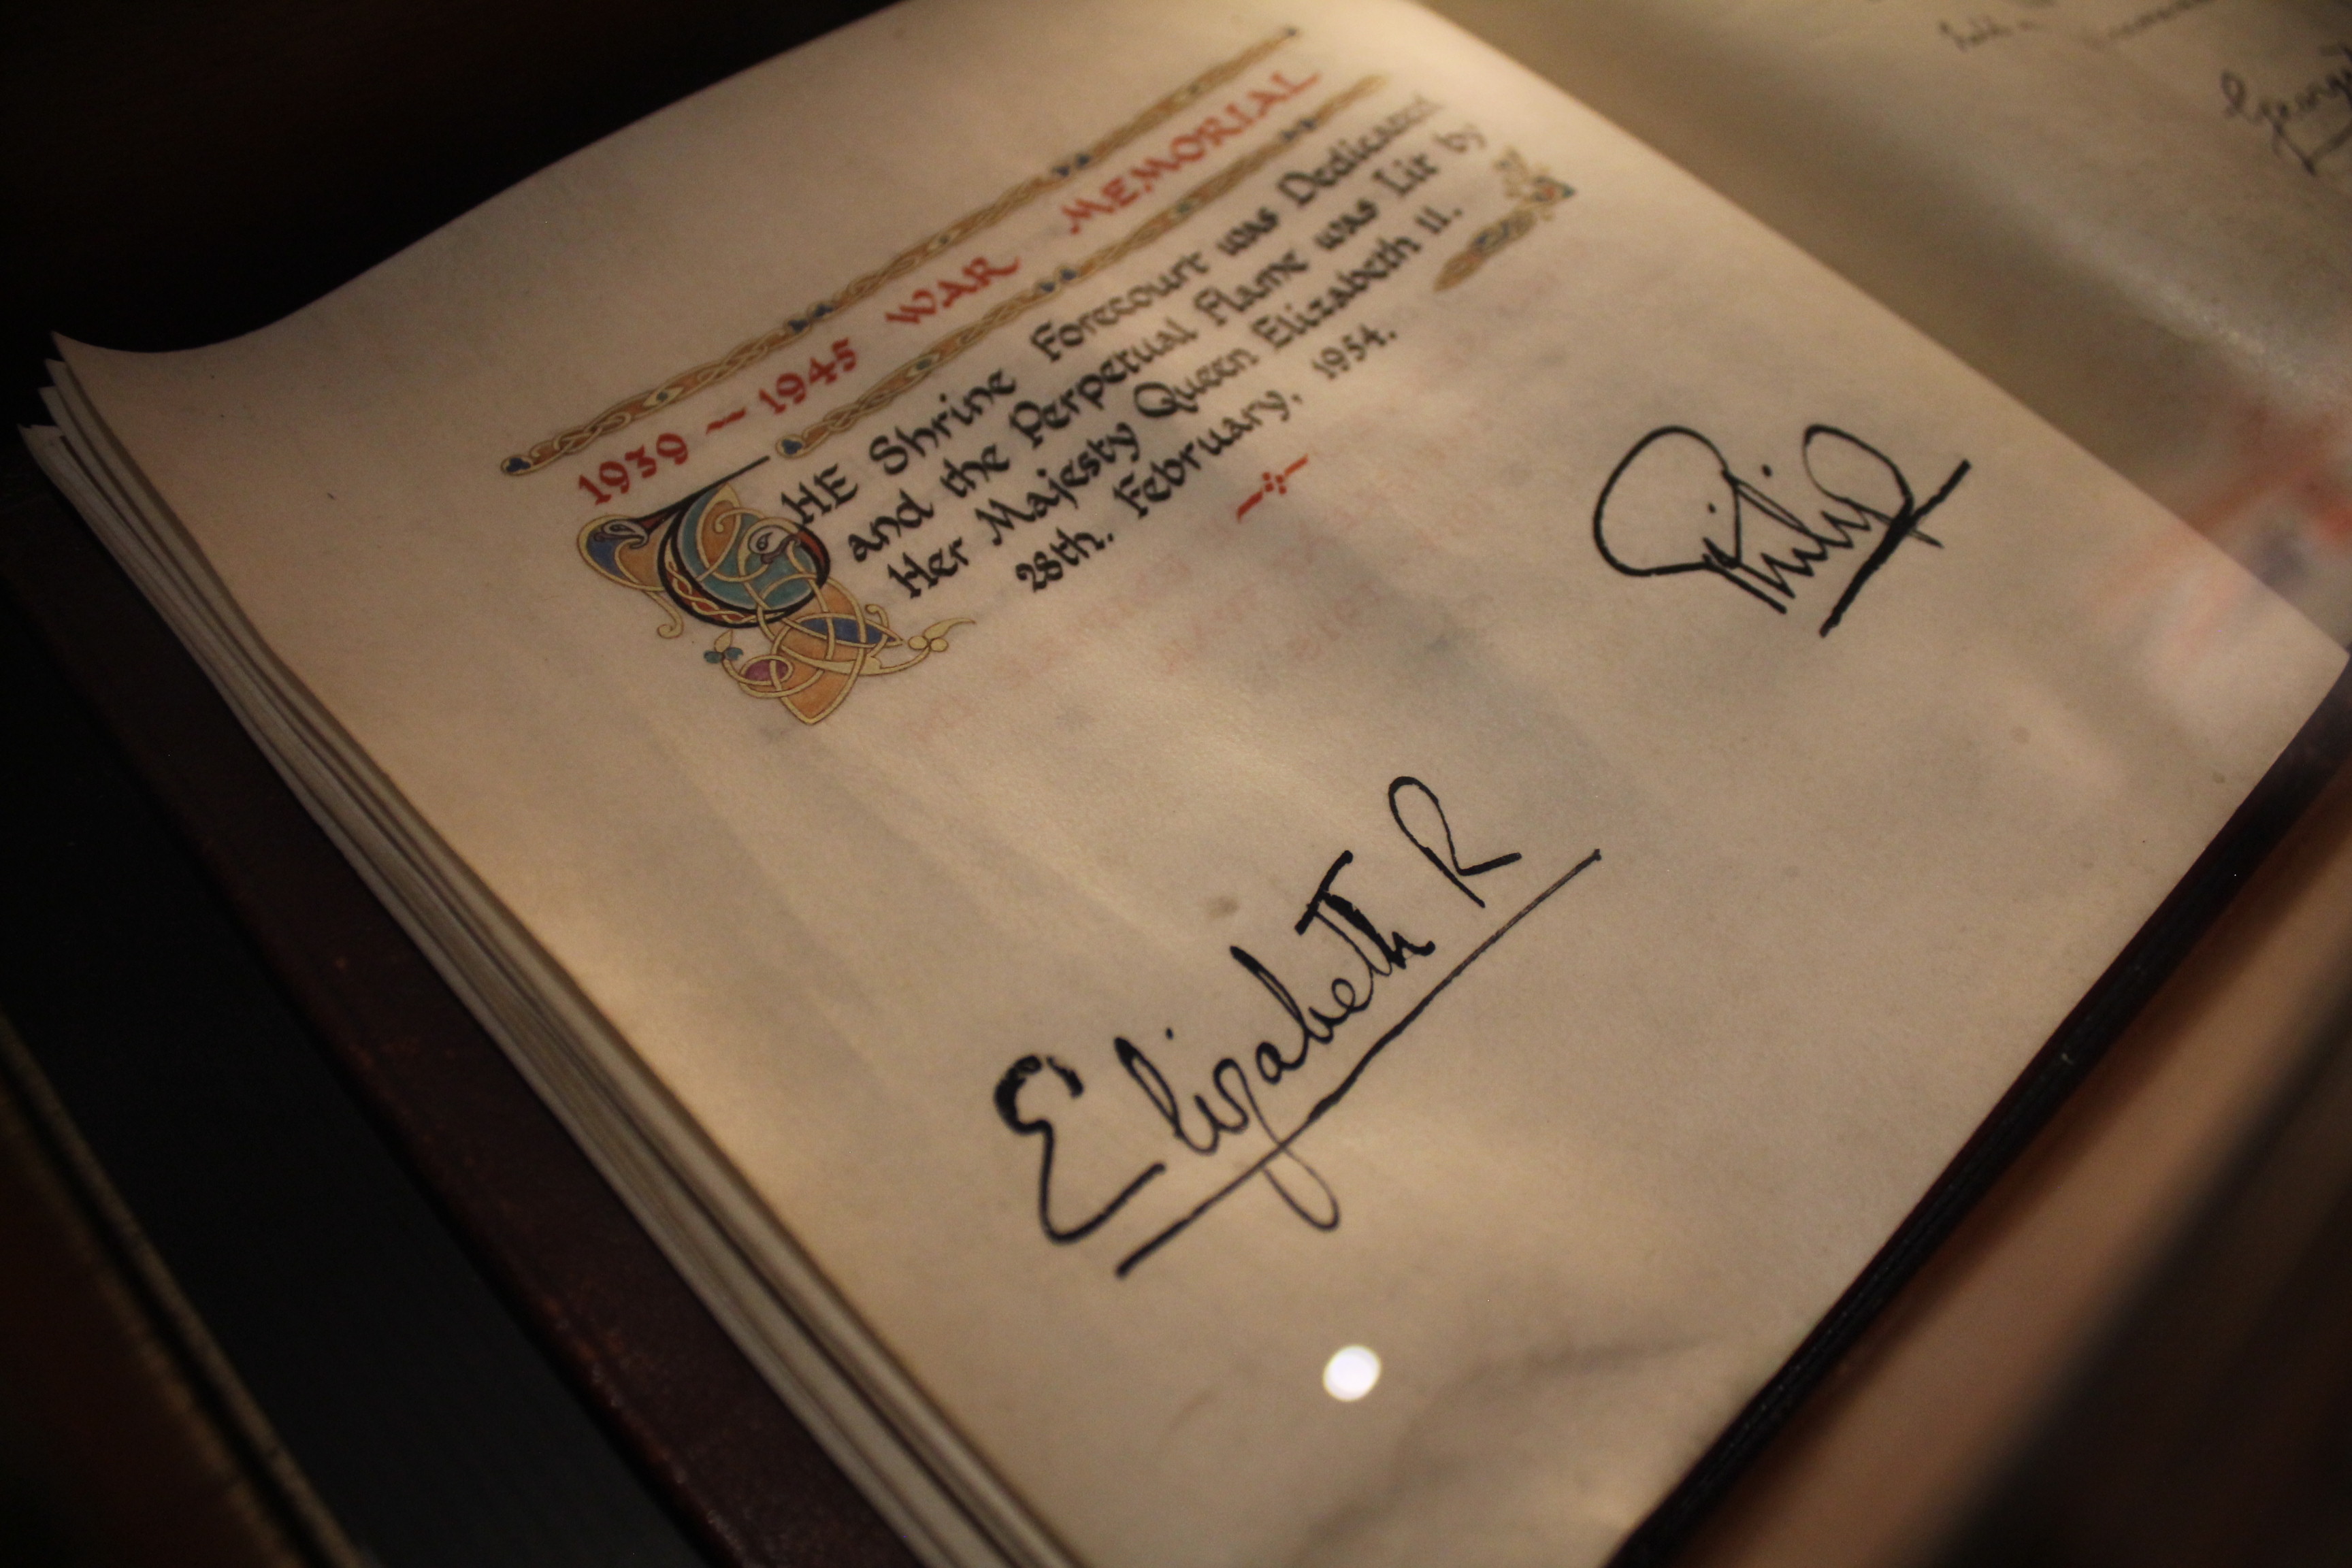 1939 — 1945 WAR MEMORIAL
THE Shrine Forecourt was Dedicated
and the Perpetual Flame was Lit by
Her Majesty Queen Elizabeth II.
28th. February, 1954.
Philip
Elizabeth R